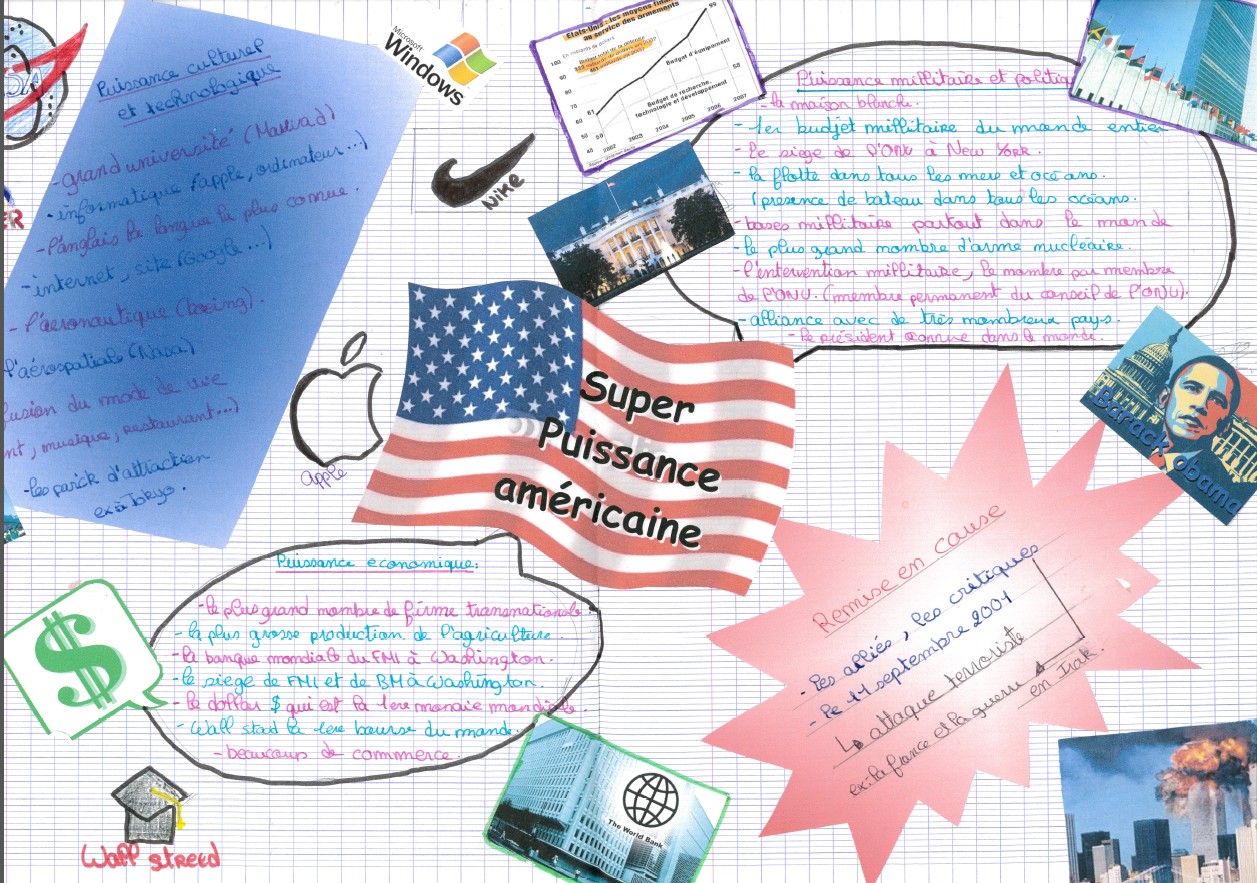 Puissance culturel
et technologique
-grand université (Harvad)
-informatique (apple, ordinateur...)
-l'anglais la langue la plus connue.
-internet, site (Google...)
- l'aéronautique (boeing).
l'aérospatiale (Nasa)
fusion du mode de vie
nt, musique, restaurant...)
-les parck d'attraction
ex:à Tokyo.
Microsoft
Windows
Nike
apple
Etats-Unis : les moyens finan
au service des armements
En milliards de dollars
Budget d'équipement
Budget de recherche,
technologie et développement
2002 2003 2004 2005 2006 2007
Puissance millitaire et politiq
-la maison blanche.
- 1er budjet millitaire du monde entier
- le siege de l'ONU à New York.
- la flotte dans tous les mers et océans.
(présence de bateau dans tous les océans.
-bases millitaire partout dans le monde
-le plus grand nombre d'arme nucléaire.
-l'intervention millitaire, le nombre par membre
de l'ONU. (membre permanent du conseil de l'ONU).
-alliance avec de très nombreux pays.
-le président connue dans le monde.
Barack obama
Super
Puissance
américaine
Puissance economique:
-le plus grand nombre de firme transnationale.
-la plus grosse production de l'agriculture.
-la banque mondiale du FMI à Washington.
-le siege de FMI et de BM à Washington.
-le dollar $ qui est la 1ere monaie mondiale.
-Wall stad la 1ere bourse du monde.
-beaucoups de commerce.
$
Wall streed
The World Bank
Remise en cause
- les alliés, les critiques
- le 11 septembre 2001
↳ attaque terroriste
ex:la france et la guerre
en Irak.